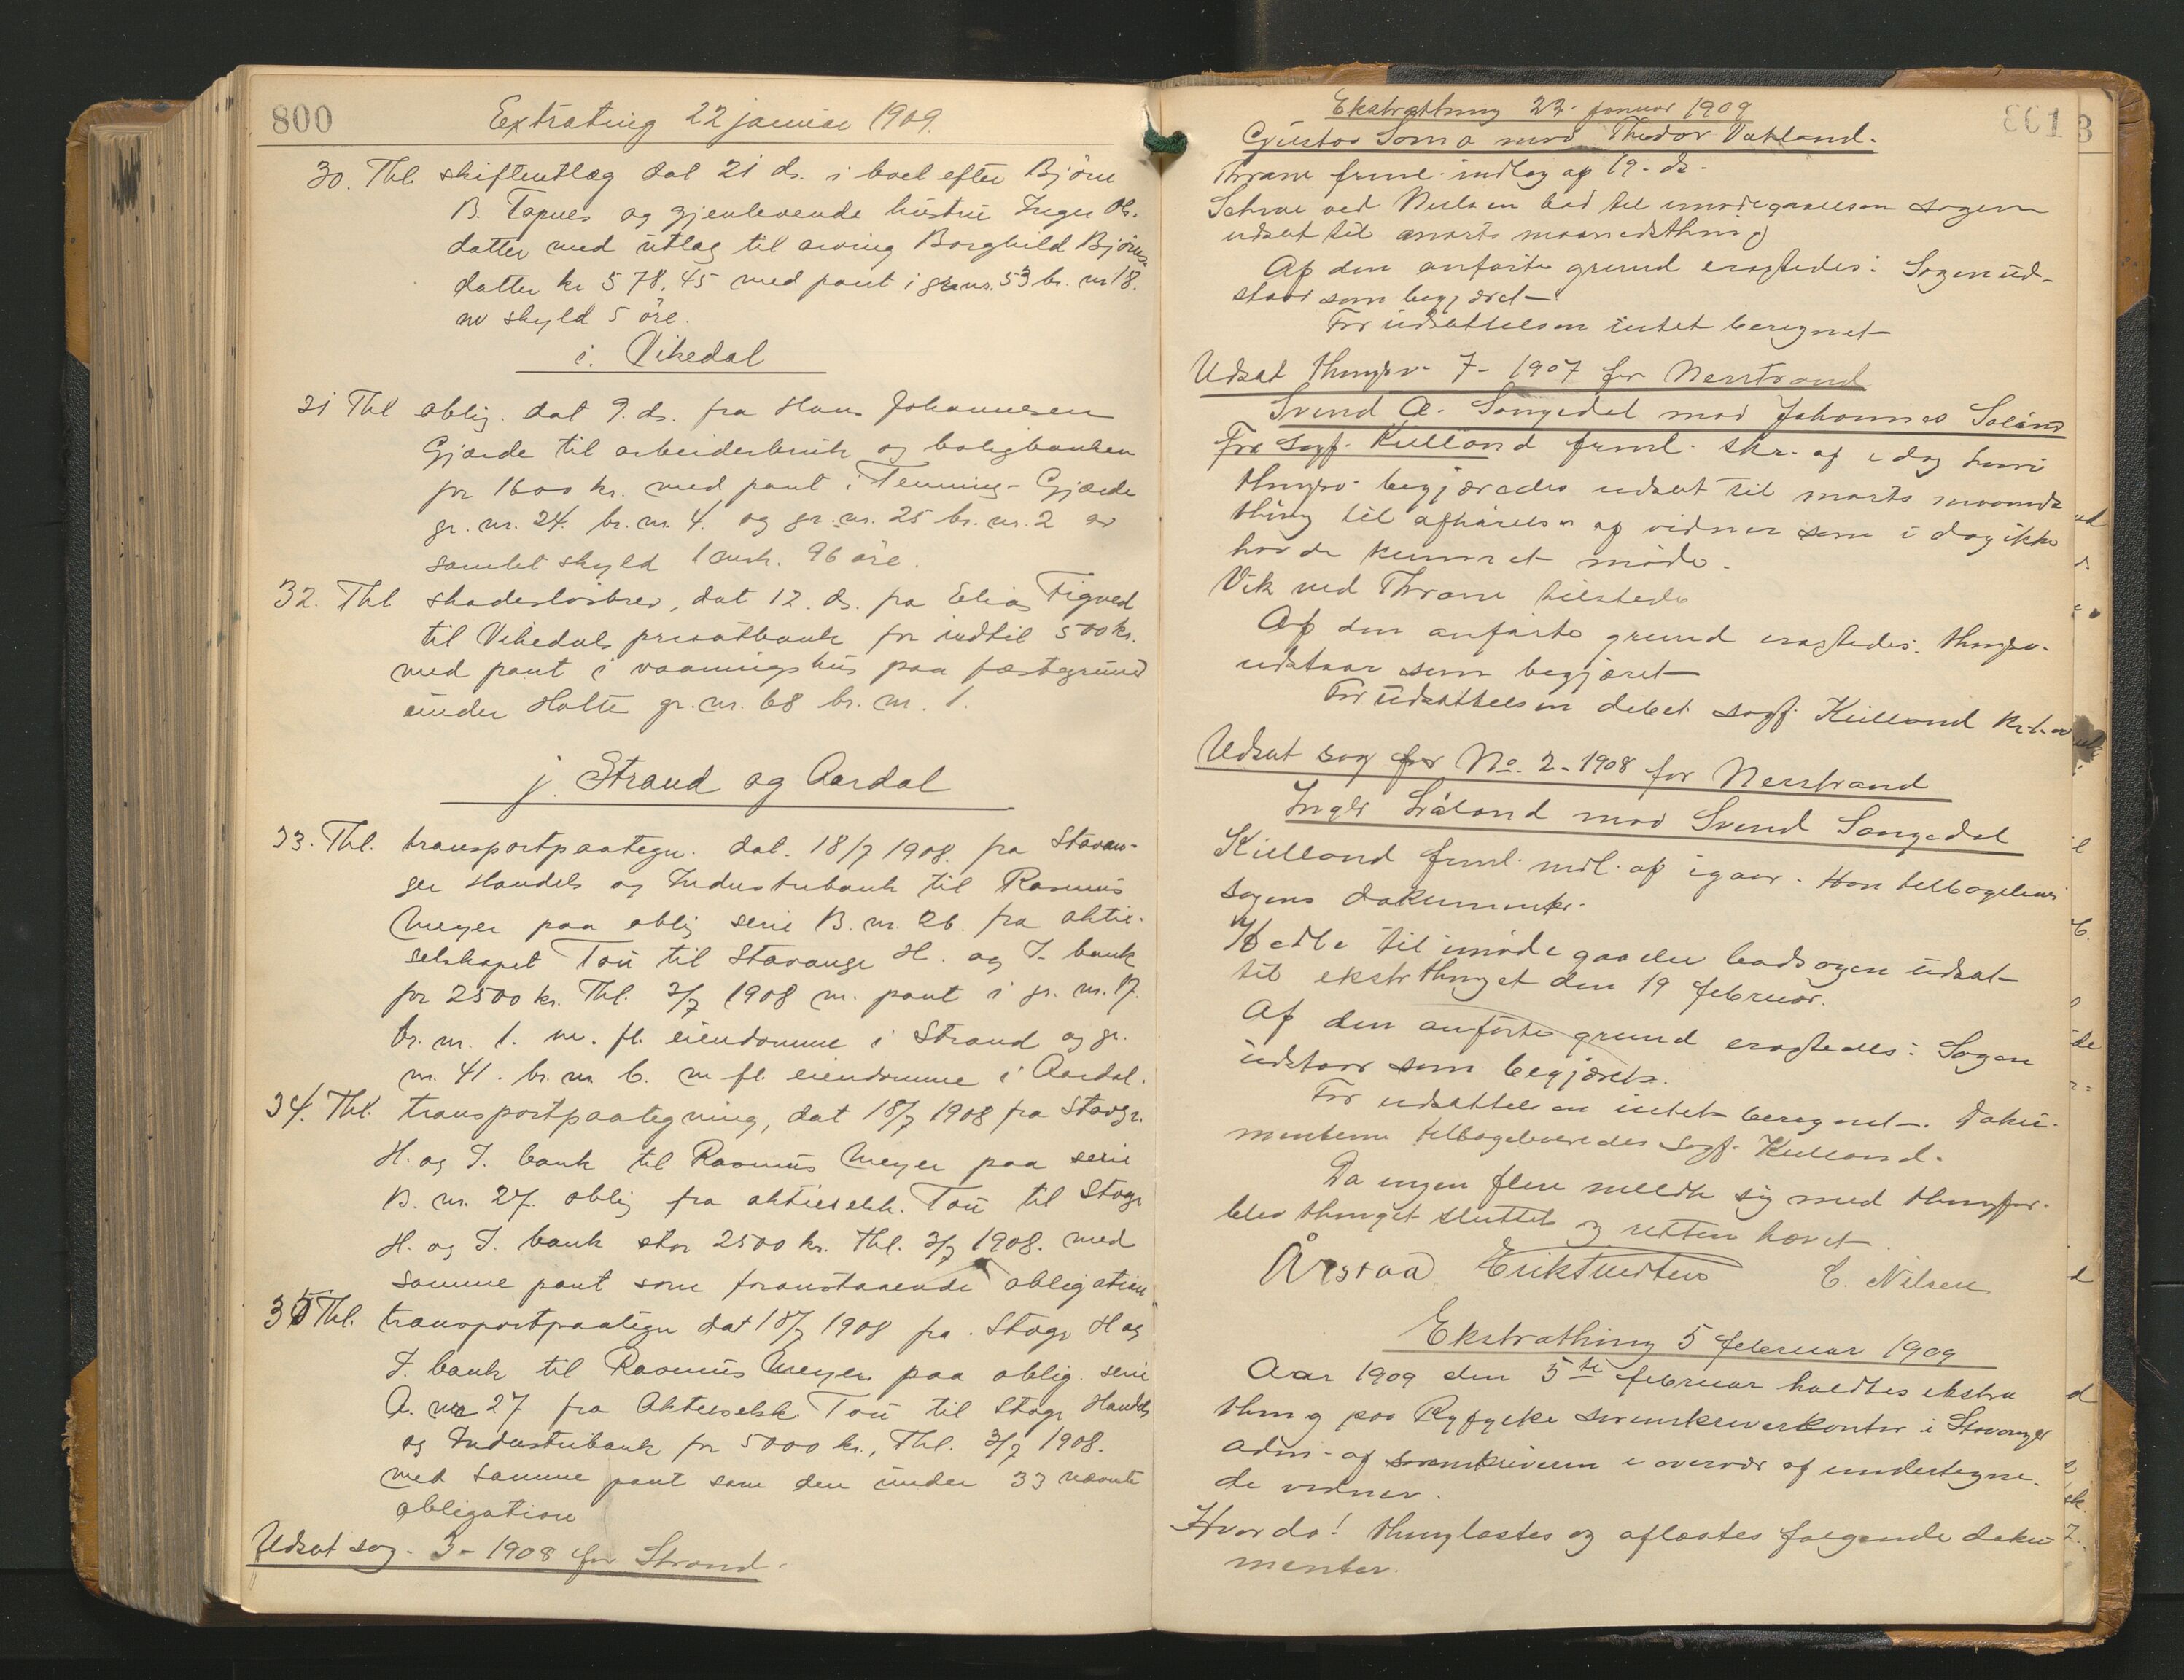 800
Extrating 22 januar 1909.
30. Thl. skifteutlæg dat 21 ds. i boet efter Björn
B. Tapnes og gjenlevende hustru Inger Ols.
datter med utlæg til arving Borghild Björns-
datter kr 578.45 med pant i gr. nr. 53 br. nr 18.
av skyld 5 öre.
i. Vikedal
31 Thl oblig. dat 9. ds. fra Hans Johannesen
Gjærde til arbeiderbruk og boligbanken
for 1600 kr. med pant i Tenning- Gjærde
gr. nr. 24. br. nr. 4. og gr. nr. 25 br. nr. 2 av
samlet skyld 1 mrk. 96 öre.
32. Thl skadeslösbrev, dat 12. ds. fra Elias Tigved
til Vikedals privatbank for indtil 500 kr.
med pant i vaaningshus paa fæstegrund
under Holte gr. nr. 68 br. nr. 1.
j. Strand og Aardal
33. Thl. transportpaategn. dat. 18/7 1908. fra Stavan-
ger Handels og Industribank til Rasmus
Meyer paa oblig serie B. nr. 26. fra aktie-
selskapet Tou til Stavanger H. og I. bank
for 2500 kr. Thl. 3/7 1908 m. pant i gr. nr. 17.
br. nr. 1. m. fl. eiendomme i Strand og gr.
nr. 41. br. nr 6. m fl. eiendomme i Aardal.
34. Thl. transportpaategning, dat 18/7 1908 fra Stavgr.
H. og I. bank til Rasmus Meyer paa serie
B. nr. 27. oblig fra aktieselsk. Tou til Stvgr
H. og I. bank stor 2500 kr. Thl. 3/7 1908. med
samme pant som foranstaaende obligation
35 Thl. transportpaategn dat 18/7 1908 fra Stvgr H og
I. bank til Rasmus Meyer paa oblig. serie
A. nr 27 fra Aktieselsk. Tou til Stvgr Handels
og Industribank for 5000 kr., Thl. 3/7 1908.
med samme pant som den under 33 nævnte
obligation
Udsat sag. 3 - 1908 for Strand.
801
Ekstrathing 22. januar 1909
Gustav Soma mod Thedor Vatland.
Thrane freml. indlæg af 19. ds.
ved Nielsen bad til imødegaaelsen sagen
udsat til marts maanedsthing
Af den anførte grund eragtedes: Sagen ud-
staar som begjæret
For udsættelsen intet beregnet
Udsat thingsv. 7 - 1907 for Nerstrand
Svend A. Songedal mod Johannes Soland
For sagf. Kielland freml. skr. af i dag hvori
thingsv. begjæredes udsat til marts maaneds
thing til afhørelse af vidner som i dag ikke
havde kunnet møde.
Vik ved Thrane tilstede
Af den anførte grund eragtedes: thingsv.
udstaar som begjæret
For udsættelsen debet sagf. Kielland kr
Udsat sag No. 2 - 1908 for Nerstrand
Soland mod Svend Songedal
Kielland freml. af igaar. Han tilbagelev
sagens dokumenter.
til imødegaaelse bad sagen udsat
til ekstrathinget den 19 februar.
Af den anførte grund eragtedes: Sagen
udstaar som begjæret.
For udsættelsen intet beregnet. Doku-
menterne tilbageleveredes sagf. Kielland.
Da ingen flere meldte sig med thingfor.
blev thinget sluttet og retten hævet.
Årstad C. Nilsen
Ekstrathing 5 februar 1909
Aar 1909 den 5te februar holdtes ekstra
thing paa Ryfylke sorenskriverkontor i Stavanger
adm. af sorenskriveren i overvær af undertegne-
de vidner.
Hvorda! thinglæstes og aflæstes følgende doku
menter.